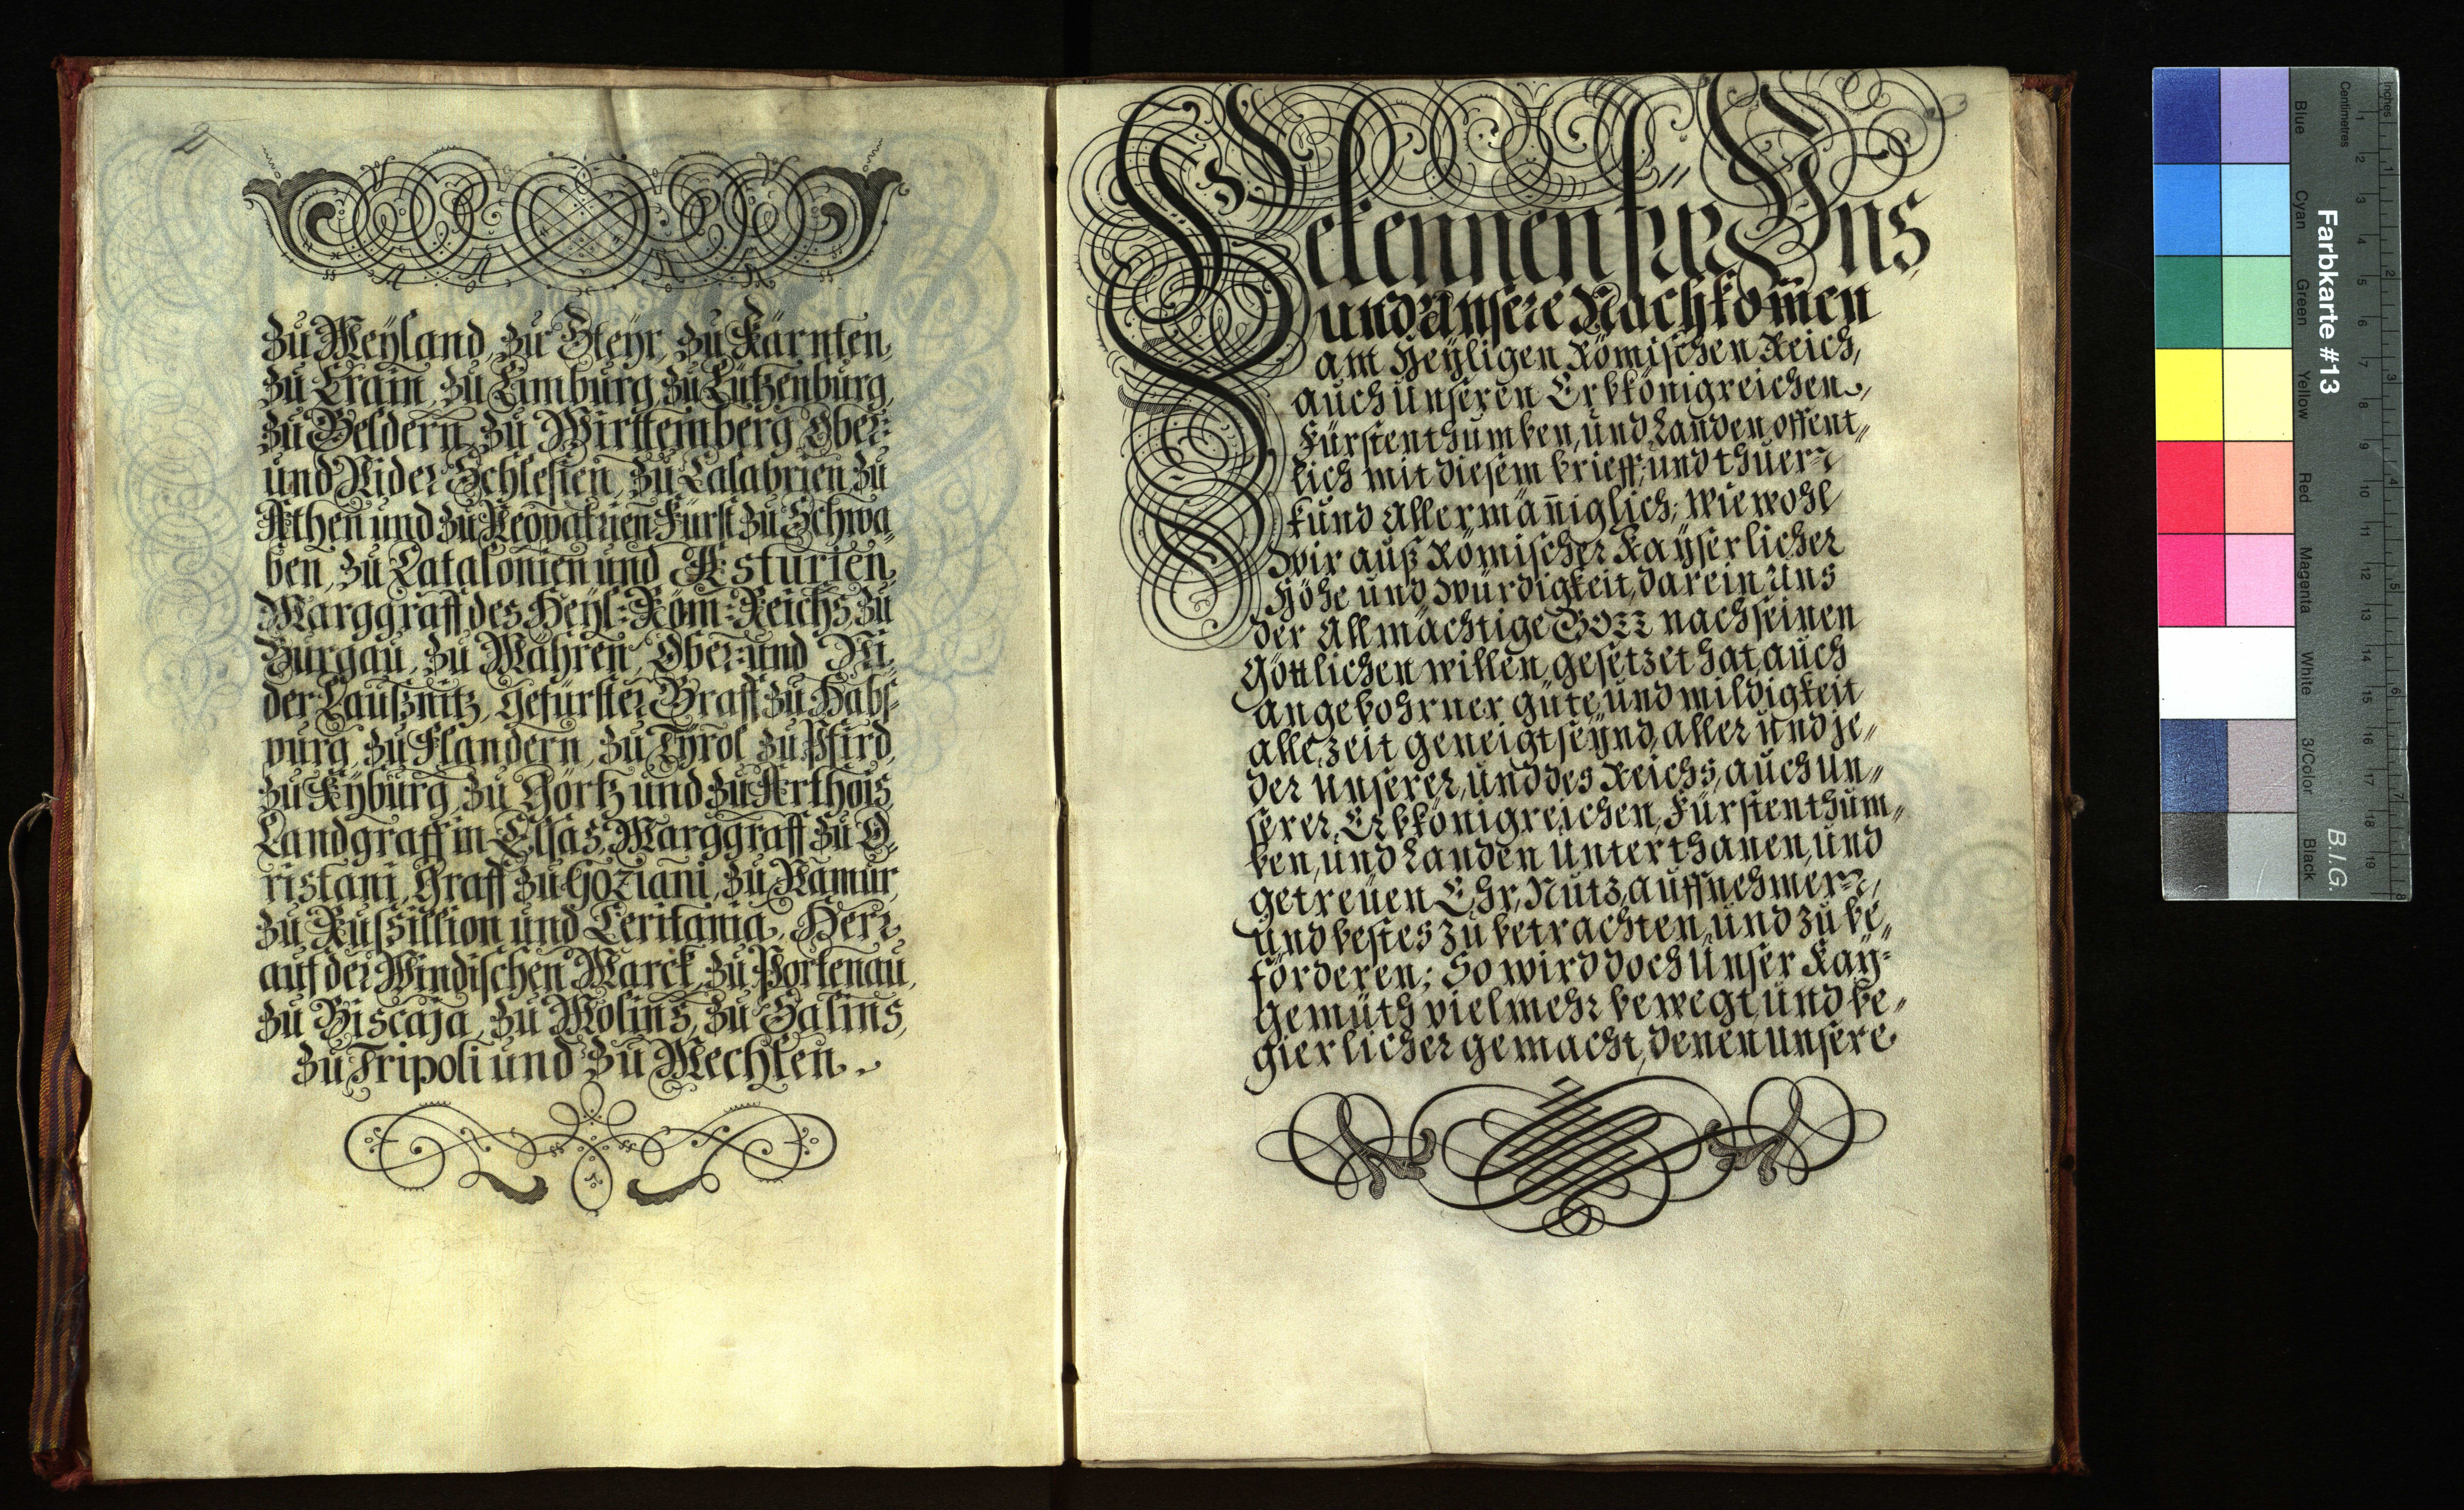 2
zu Meyland, zu Steyr, zu Kärnten,
zu Crain, zu Limburg, zu Lützenburg,
zu Geldern, zu Wirttemberg, Ober-
und Nider Schlesien, zu Calabrien, zu
Athen und zu Neopatrien Fürst zu Schwa„
ben, zu Catalonien und Asturien,
Marggraff des Heyl: Röm: Reichs, zu
Burgau, zu Mähren, Ober- und Ni„
der Laußnitz, gefürster Graff zu Habs-
purg, zu Flandern, zu Tyrol, zu Pfird,
zu Kyburg, zu Görtz und zu Arthois,
Landgraff in Elsas, Marggraff zu O„
ristani, Graff zu Goziani, zu Namur,
zu Russillion und Ceritania, Herr
auf der Windischen Marck, zu Portenau,
zu Biscaja, zu Molins, zu Salins,
zu Tripoli und zu Mechlen.
Bekennen für Uns,
und Unsere Nachkom̄en
am Heyligen Römischen Reich,
auch Unseren Erbkönigreichen,
Fürstenthumben, und Landen offent„
lich mit diesem brieff, und thuen
kund Allermäniglich; wie wohl
wir auß Römischer Kayserlicher
Höhe und würdigkeit, darein Uns
der Allmächtige GOTT nach seinen
Göttlichen willen gesetzet hat, auch
angebohrner güte, und mildigkeit
allezeit geneigt seynd, aller und je„
der Unserer, und des Reichs, auch Un„
serer, Erbkönigreichen, Fürstenthum„
ben, und Landen Unterthanen, und
getreuen Ehr, Nutz, auffnehmen,
und bestes zu betrachten, und zu be„
förderen; So wird doch Unser Kay-
gemüth vielmehr bewegt, und be„
gierlicher gemacht, denen Unsere
Farbkarte #13
B.I.G.
Blue
Cyan
Green
Yellow
Red
Magenta
White
3/Color
Black
Centimetres
Inches
1 2 3 4 5 6 7 8 9 10 11 12 13 14 15 16 17 18 19
1 2 3 4 5 6 7 8